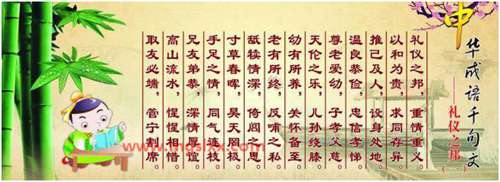 中华成语千句文
——礼仪之邦
礼仪之邦，重情重义
以和为贵，求同存异
推己及人，设身处地
温良恭俭，忠信孝悌
尊老爱幼，子孝父慈
天伦之乐，儿孙绕膝
幼有所养，关怀备至
老有所终，反哺之私
舐犊情深，倚闾思
寸草春晖，昊天罔极
手足之情，同气连枝
兄友弟恭，深情厚谊
高山流水，惺惺相惜
取友必端，管宁割席